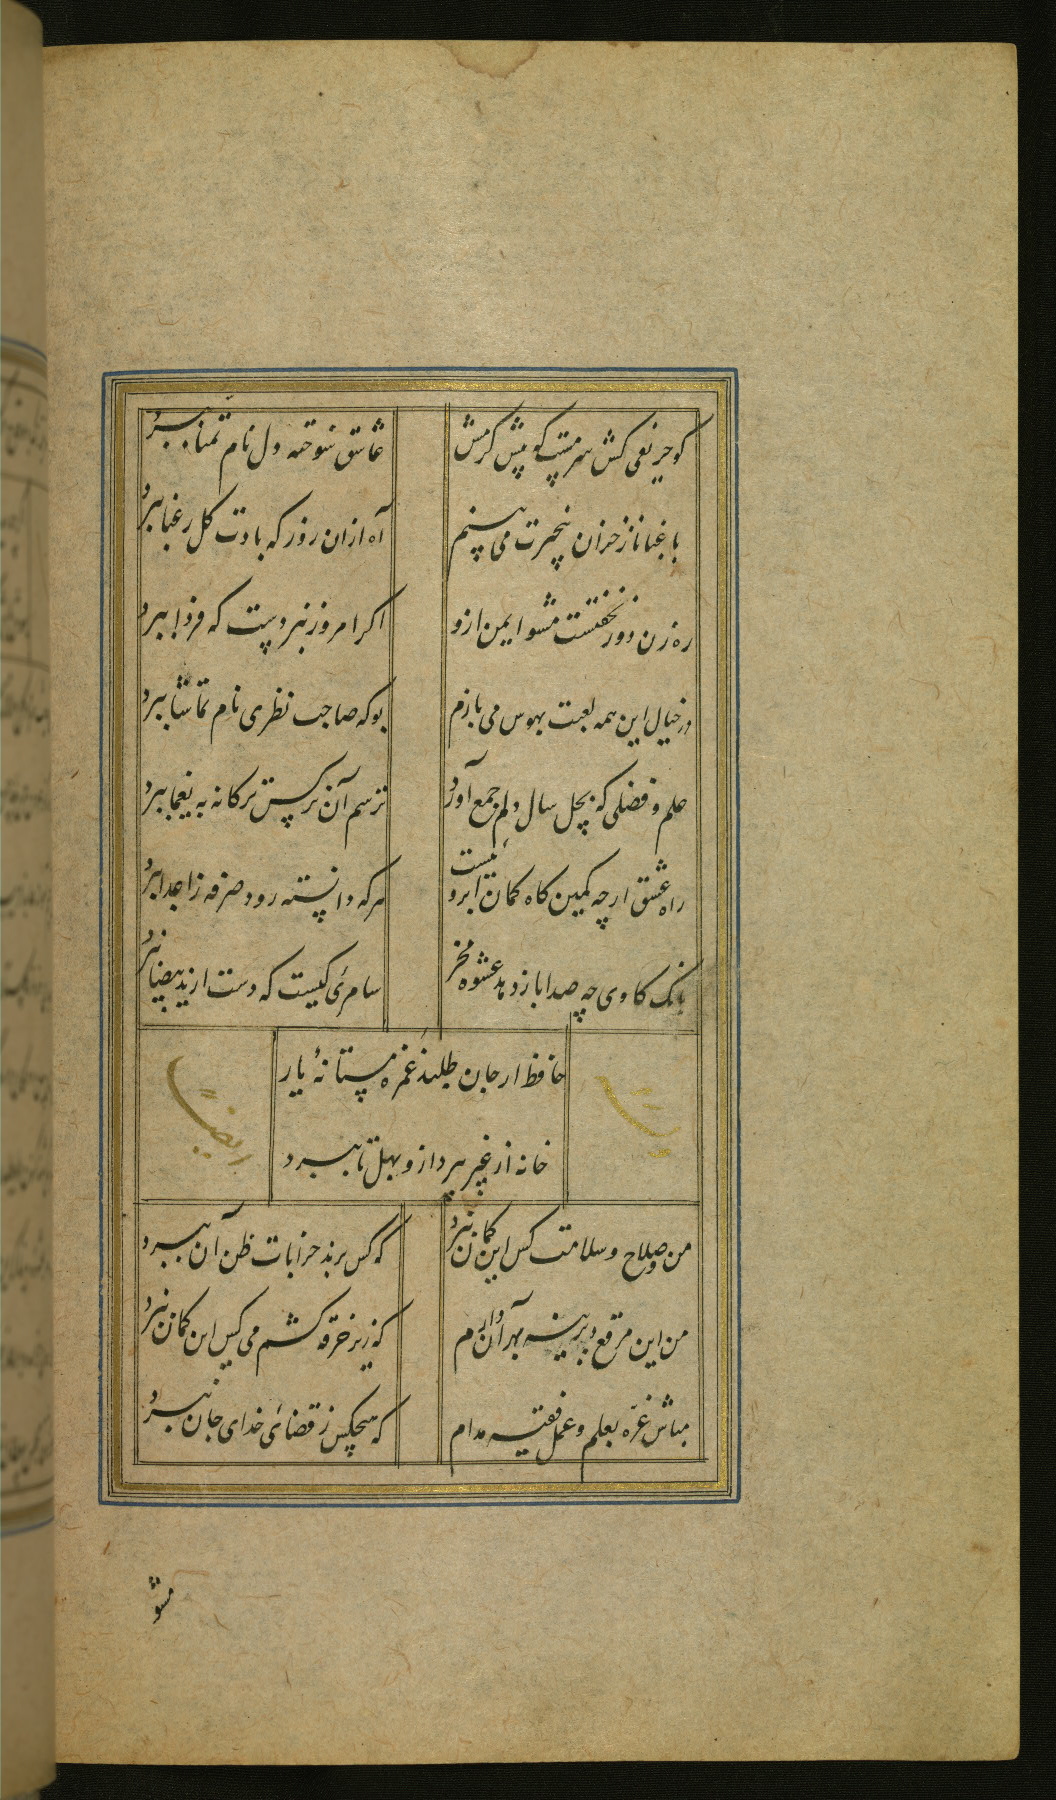 کو حریفی کش سرمست که پیش کرمش
عاشق سوخته دل نام تمنا ببرد
باغبانا ز خزان بیخبرت می بینم
آه ازان روز که بادت کل رعنا ببرد
ره زن دور نخفتست مشو ایمن ازو
اکر امروز نبردست که فردا ببرد
در خیال این همه لعبت بهوس می بازم
بو که صاحب نظری نام تماشا ببرد
علم و فضلی که بچل سال دلم جمع آورد
ترسم آن نرکس ترکانه به یغما ببرد
راه عشق ار چه کمین کاه کمان ابرو نیست
هر که دانسته رود صرفه ز اعدا ببرد
بانک کاوی چه صدا باز دهد عشوه مخر
سامری کیست که دست از ید بیضا ببرد
حافظ ار جان طلبد غمزه مستانهٔ یار
خانه از غیر بپرداز و بهل تا ببرد
من و صلاح و سلامت کس این کمان نبرد
که کس برند خرابات ظن آن نبرد
من این مرقع دیرینه بهر آن دارم
که زیر خرقه کشم می کس این کمان نبرد
مباش غره بعلم و عمل فقیه مدام
که هیچکس ز قضای خدای جان نبرد
مشو